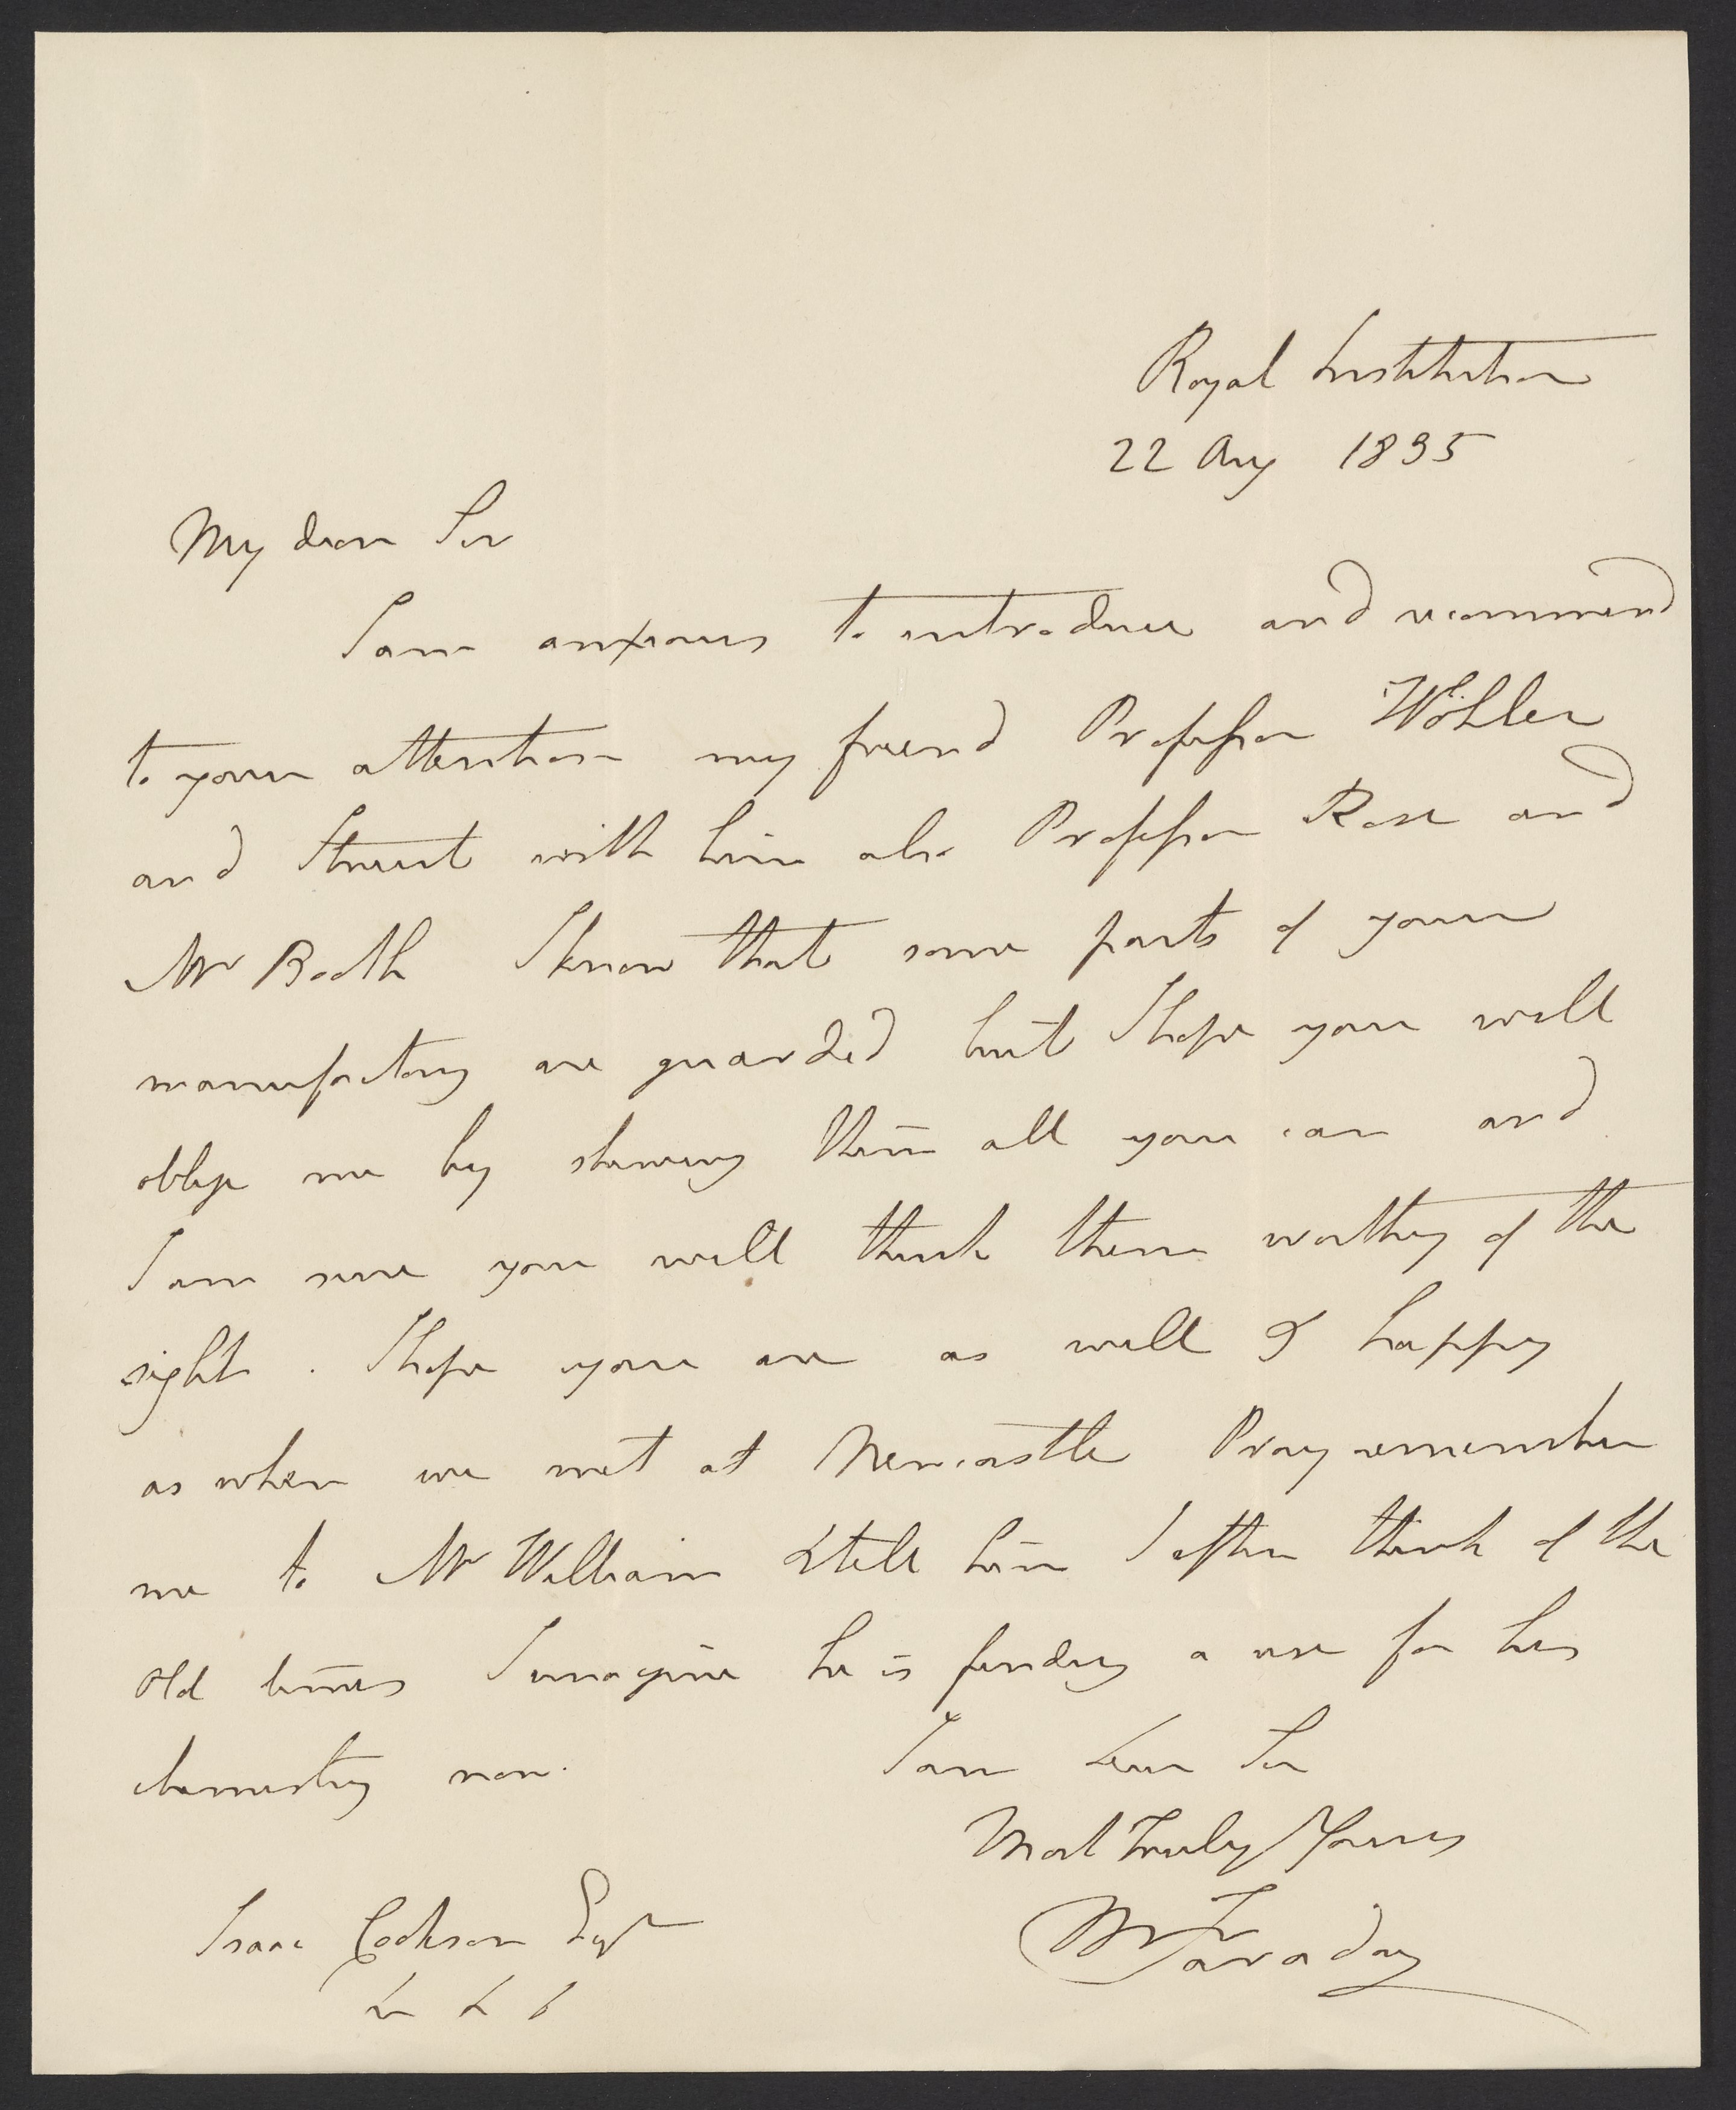 Royal Institution
22 Aug 1835
My dear Sir
I am anxious to introduce and recommend
to your attention my friend Professor Wöhler
and I trust with him also Professor Rose and
Mr Booth I know that some parts of your
manufactory are guarded but I hope you will
oblige me by shewing them all you can and
I am sure you will think them worthy of the
sight. I hope you are as well & happy
as when we met at Newcastle Pray remember
me to Mr William & tell him I often think of the
old times I imagine he is finding a use for his
chemistry now.
I am Dear Sir
Most Truly Yours
M Faraday
Isaac Cookson Esqr